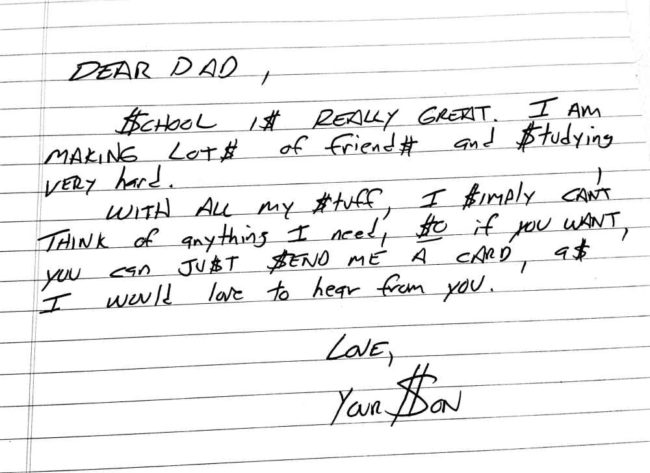 DEAR DAD,
$CHOOL I$ REALLY GREAT. I AM
MAKING LOT$ of friend$ and $tudying
VERY hard.
WITH ALL my $tuff, I $IMPLY CAN'T
THINK of anything I need, $O if you WANT,
you can JU$T $END ME A CARD, a$
I would love to hear from you.
LOVE,
Your $ON